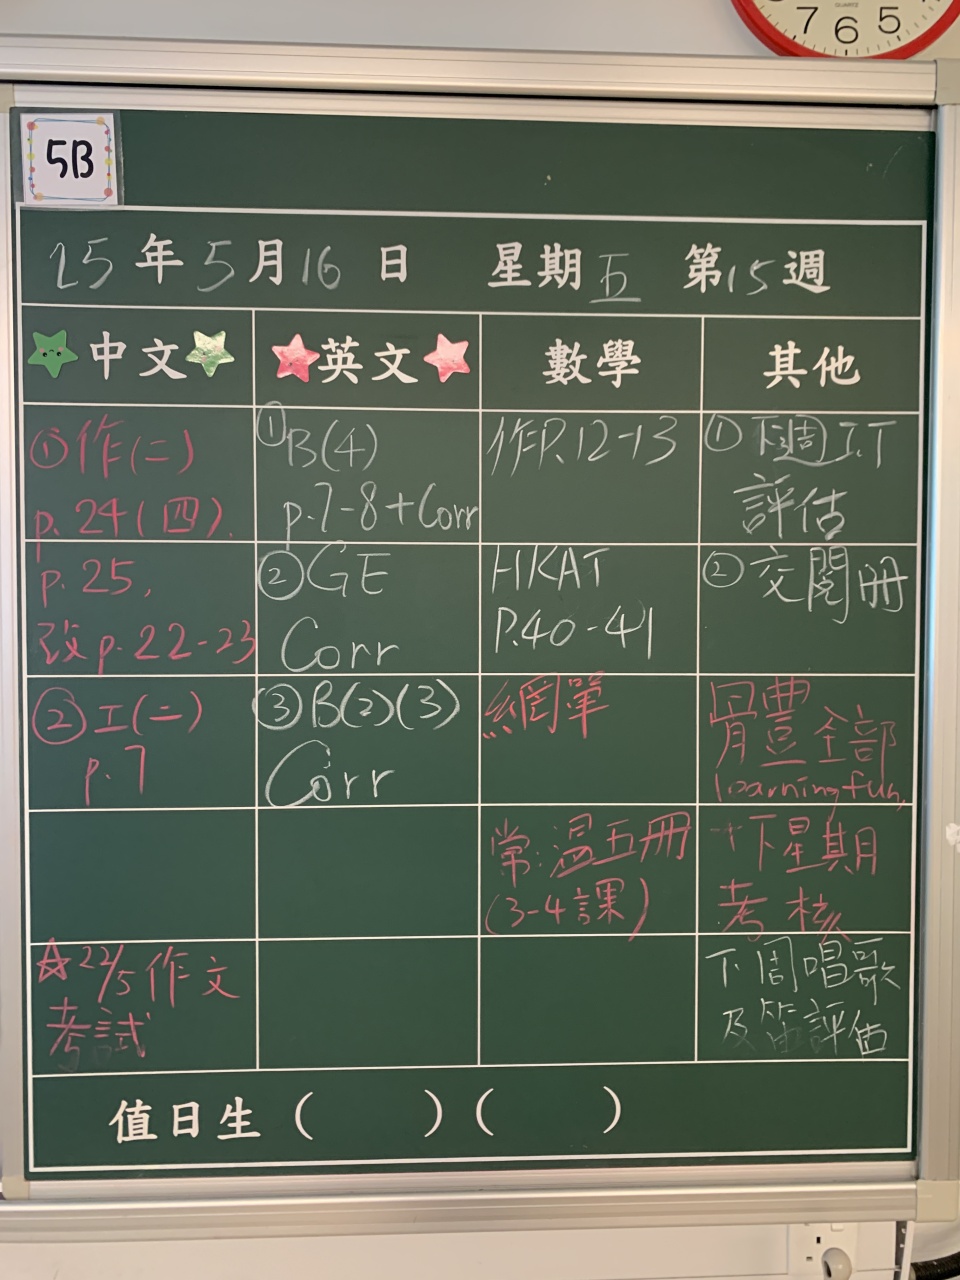 QUARTZ
7 6 5
5B
25年5月16日 星期五 第15週
中文 英文 數學 其他
①作(二)
p.24(四).
p.25,
改p.22-23
②工(二)
p.7
☆22/5作文
考試
①B(4)
p.7-8+Corr
②GE
Corr
③B(2)(3)
Corr
作P.12-13
HKAT
P.40-41
網單
常:温五冊
(3-4課)
①下週I.T
評估
②交閱冊
全部
learningfun,
下星期
考核
下周唱歌
及笛評估
值日生( )( )